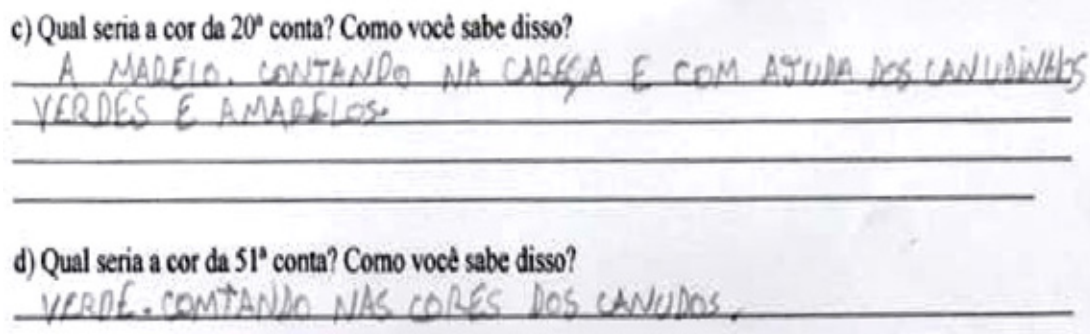 c) Qual seria a cor da 20ª conta? Como você sabe disso?
A MARELO. CONTANDO NA CABEÇA E COM AJUDA DOS CANUDINHOS
VERDES E AMARELOS.
d) Qual seria a cor da 51ª conta? Como você sabe disso?
VERDE. COMTANDO NAS CORES DOS CANUDOS.